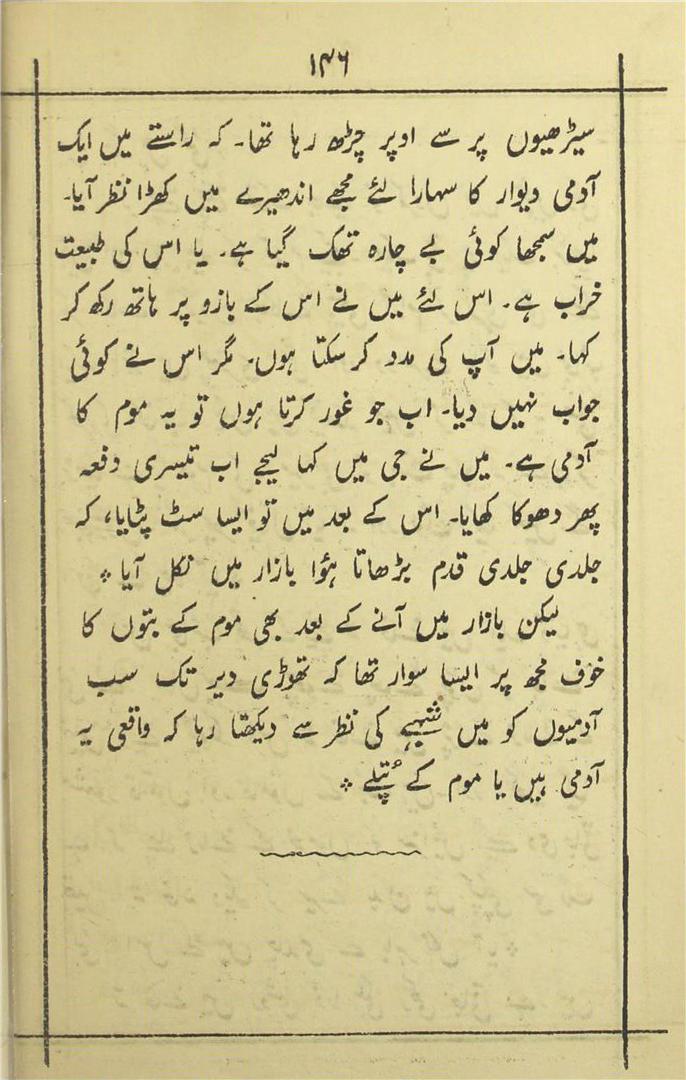 ۱۴۶
سیڑھیوں پر سے اوپر چڑھ رہا تھا۔ کہ راستے میں ایک
آدمی دیوار کا سہارا لئے مجھے اندھیرے میں کھڑا نظر آیا۔
میں سمجھا کوئی بے چارہ تھک گیا ہے۔ یا اس کی طبیعت
خراب ہے۔ اس لئے میں نے اس کے بازو پر ہاتھ رکھ کر
کہا۔ میں آپ کی مدد کر سکتا ہوں۔ مگر اس نے کوئی
جواب نہیں دیا۔ اب جو غور کرتا ہوں تو یہ موم کا
آدمی ہے۔ میں نے جی میں کہا لیجے اب تیسری دفعہ
پھر دھوکا کھایا۔ اس کے بعد میں تو ایسا سٹ پٹایا، کہ
جلدی جلدی قدم بڑھاتا ہؤا بازار میں نکل آیا ❊
لیکن بازار میں آنے کے بعد بھی موم کے بتوں کا
خوف مجھ پر ایسا سوار تھا کہ تھوڑی دیر تک سب
آدمیوں کو میں شبہے کی نظر سے دیکھتا رہا کہ واقعی یہ
آدمی ہیں یا موم کے پُتلے ❊